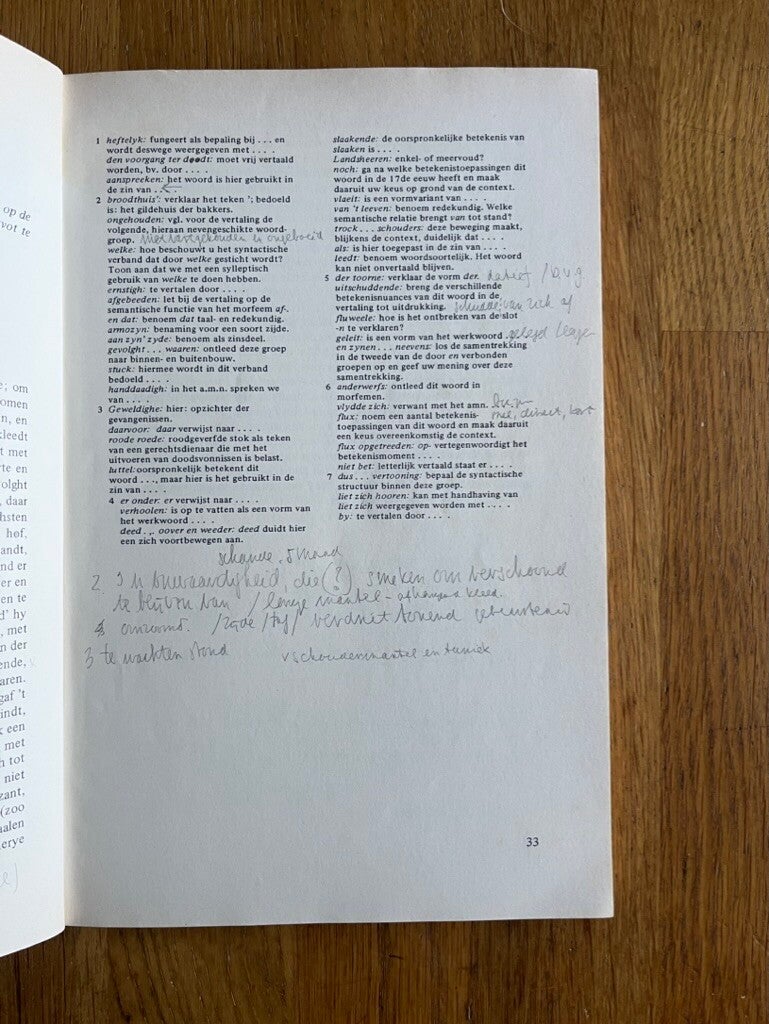 op de
vot te
e; om
omen
n, en
kleedt
t met
rte en
olght
, daar
chsten
høf,
andt,
nd er
er en
en te
d' hy
, met
n der
ende,
aren.
gaf 't
indt,
k een
met
h tot
niet
zant,
(zoo
aalen
erye
1 heftelyk: fungeert als bepaling bij . . . en
wordt deswege weergegeven met . . . .
den voorgang ter doodt: moet vrij vertaald
worden, bv. door . . . .
aanspreeken: het woord is hier gebruikt in
de zin van . . . .
2 broodthuis': verklaar het teken '; bedoeld
is: het gildehuis der bakkers.
ongehouden: vgl. voor de vertaling de
volgende, hieraan nevengeschikte woord-
groep. niet vastgehouden
welke: hoe beschouwt u het syntactische
verband dat door welke gesticht wordt?
Toon aan dat we met een sylleptisch
gebruik van welke te doen hebben.
ernstigh: te vertalen door . . . .
afgebeeden: let bij de vertaling op de
semantische functie van het morfeem af-.
en dat: benoem dat taal- en redekundig.
armozyn: benaming voor een soort zijde.
aan zyn' zyde: benoem als zinsdeel.
gevolght . . . waaren: ontleed deze groep
naar binnen- en buitenbouw.
stuck: hiermee wordt in dit verband
bedoeld . . . .
handdaadigh: in het a.m.n. spreken we
van . . . .
3 Geweldighe: hier: opzichter der
gevangenissen.
daarvoor: daar verwijst naar . . . .
roode roede: roodgeverfde stok als teken
van een gerechtsdienaar die met het
uitvoeren van doodsvonnissen is belast.
luttel:oorspronkelijk betekent dit
woord . . ., maar hier is het gebruikt in de
zin van . . . .
4 er onder: er verwijst naar . . . .
verhoolen: is op te vatten als een vorm van
het werkwoord . . . .
deed . . . oover en weeder: deed duidt hier
een zich voortbewegen aan.
slaakende: de oorspronkelijke betekenis van
slaaken is . . . .
Landsheeren: enkel- of meervoud?
noch: ga na welke betekenistoepassingen dit
woord in de 17de eeuw heeft en maak
daaruit uw keus op grond van de context.
vlaeit: is een vormvariant van . . . .
van 't leeven: benoem redekundig. Welke
semantische relatie brengt van tot stand?
trock . . . schouders: deze beweging maakt,
blijkens de context, duidelijk dat . . . .
als: is hier toegepast in de zin van . . . .
leedt: benoem woordsoortelijk. Het woord
kan niet onvertaald blijven.
5 der toorne: verklaar de vorm der. datief
uitschuddende: breng de verschillende
betekenisnuances van dit woord in de
vertaling tot uitdrukking. schudde van zich af
fluweele: hoe is het ontbreken van de slot
-n te verklaren?
geleit: is een vorm van het werkwoord gelegd leggen
en zynen . . . neevens: los de samentrekking
in de tweede van de door en verbonden
groepen op en geef uw mening over deze
samentrekking.
6 anderwerfs: ontleed dit woord in
morfemen.
vlydde zich: verwant met het amn.
flux: noem een aantal betekenis- snel, direct, kort
toepassingen van dit woord en maak daaruit
een keus overeenkomstig de context.
flux opgetreeden: op- vertegenwoordigt het
betekenismoment . . . .
niet bet: letterlijk vertaald staat er . . . .
7 dus . . . vertooning: bepaal de syntactische
structuur binnen deze groep.
liet zich hooren: kan met handhaving van
liet zich weergegeven worden met . . . .
by: te vertalen door . . . .
schande, smaad
2. onwaardigheid, die (?) smeken om verschoond
te blijven van / lange mantel - afhangend kleed.
omzoomd. /zijde / verdriet tonend
3 te wachten stond v schoudermantel en tuniek
33